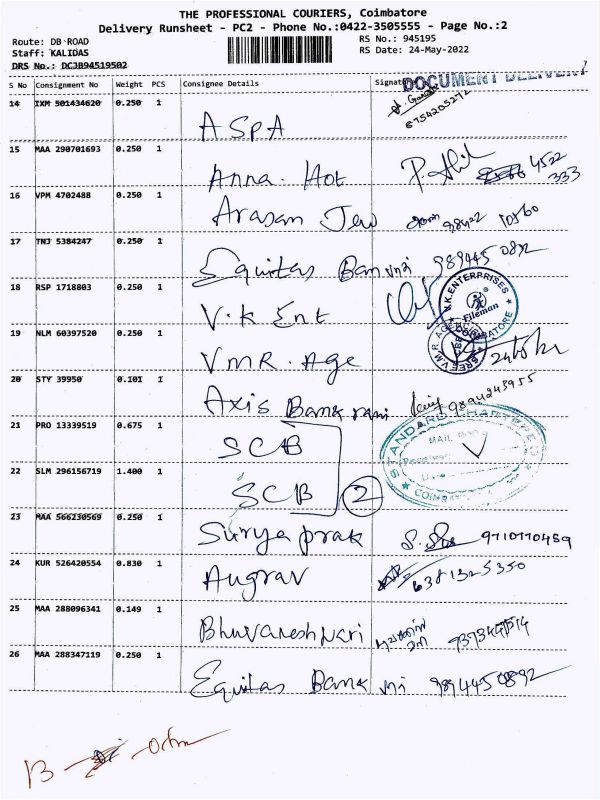 THE PROFESSIONAL COURIERS, Coimbatore
Delivery Runsheet - PC2 - Phone No.:0422-3505555 - Page No.:2
Route: DB-ROAD RS No.: 945195
Staff: KALIDAS RS Date: 24-May-2022
DRS No.: DCJB94519502
DOCUMENT DELIVERY
S No Consignment No Weight PCS Consignee Details Signature
14 IXM 501434620 0.250 1
8754205272
ASPA
15 MAA 290701693 0.250 1
Anna. Hot 4522
333
16 VPM 4702488 0.250 1
Arasan Jew
17 TNJ 5384247 0.250 1
Equitas Ban
18 RSP 1718803 0.250 1
V.K Ent
V.K.ENTERPRISES
Fileman
COIMBATORE
19 NLM 60397520 0.250 1
VMR. Age
SREE V.M.R. AGENCY
20 STY 39950 0.101 1
Axis Bank rani 9894243955
21 PRO 13339519 0.675 1
SCB
STANDARD CHARTERED
MAIL
22 SLM 296156719 1.400 1
SCB 2
COIMBATORE
23 MAA 566230569 0.250 1
Surya prak 9710770459
24 KUR 526420554 0.830 1
Augrav 6381325350
25 MAA 288096341 0.149 1
Bhuvaneshwari
26 MAA 288347119 0.250 1
Equitas Bank 9894450892
13